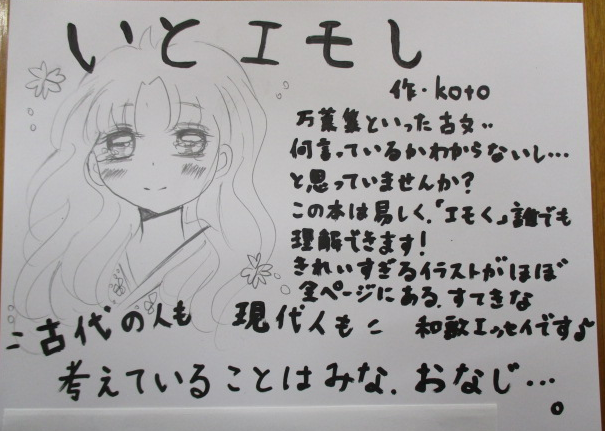 いとエモし
作・koto
万葉集といった古文‥
何言っているかわからないし…
と思っていませんか?
この本は易しく、「エモく」誰でも
理解できます!
きれいすぎるイラストがほぼ
全ページにある、すてきな
和歌エッセイです♪
=古代の人も 現代人も=
考えていることはみな、おなじ…。